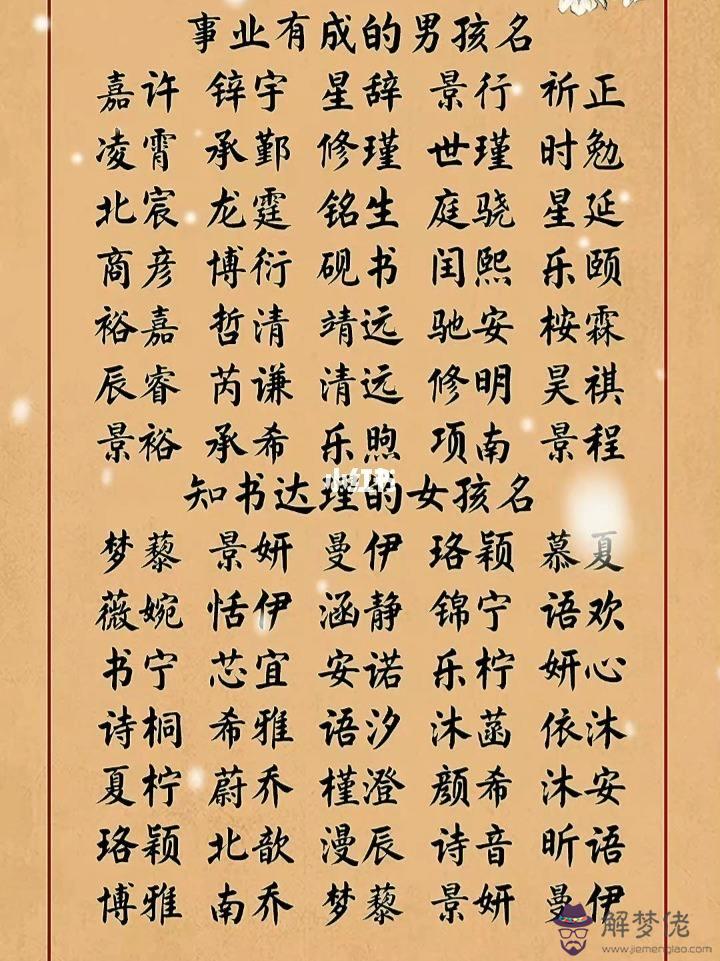 事业有成的男孩名
嘉许 锌宇 星辞 景行 祈正
凌霄 承鄞 修瑾 世瑾 时勉
北宸 龙霆 铭生 庭骁 星延
商彦 博衍 砚书 闰熙 乐颐
裕嘉 哲清 靖远 驰安 桉霖
辰睿 芮谦 清远 修明 昊祺
景裕 承希 乐煦 项南 景程
小红书
知书达理的女孩名
梦藜 景妍 曼伊 珞颖 慕夏
薇婉 恬伊 涵静 锦宁 语欢
书宁 芯宜 安诺 乐柠 妍心
诗桐 希雅 语汐 沐菡 依沐
夏柠 蔚乔 槿澄 颜希 沐安
珞颖 北歆 漫辰 诗音 昕语
博雅 南乔 梦藜 景妍 曼伊
解梦佬
www.jiemenglao.com